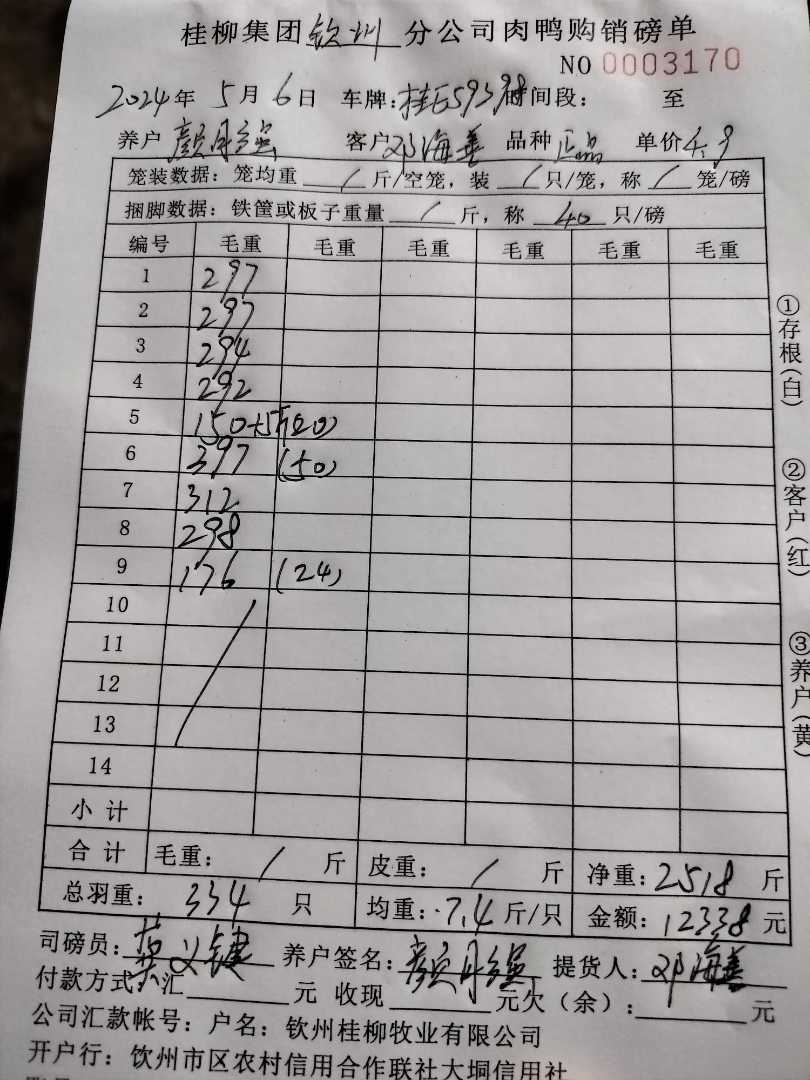 桂柳集团 钦州 分公司肉鸭购销磅单
NO 0003170
2024年 5月 6日 车牌: 桂E59398 时间段: 至
养户 颜月强 客户 邓海善 品种 正品 单价 4.9
笼装数据: 笼均重 / 斤/空笼, 装 / 只/笼, 称 / 笼/磅
捆脚数据: 铁筐或板子重量 / 斤, 称 40 只/磅
编号 毛重 毛重 毛重 毛重 毛重 毛重
1 297
2 297
3 294
4 292
5 150+5 (20)
6 397 (50)
7 312
8 298
9 176 (24)
10
11
12
13
14
小计
合计 毛重: / 斤 皮重: / 斤 净重: 2518 斤
总羽重: 334 只 均重: 7.4 斤/只 金额: 12338 元
司磅员: 义键 养户签名: 颜月强 提货人: 邓海善
付款方式: 汇 元 收现 元欠(余): 元
公司汇款帐号: 户名: 钦州桂柳牧业有限公司
开户行: 钦州市区农村信用合作联社大垌信用社
①存根(白)
②客户(红)
③养户(黄)